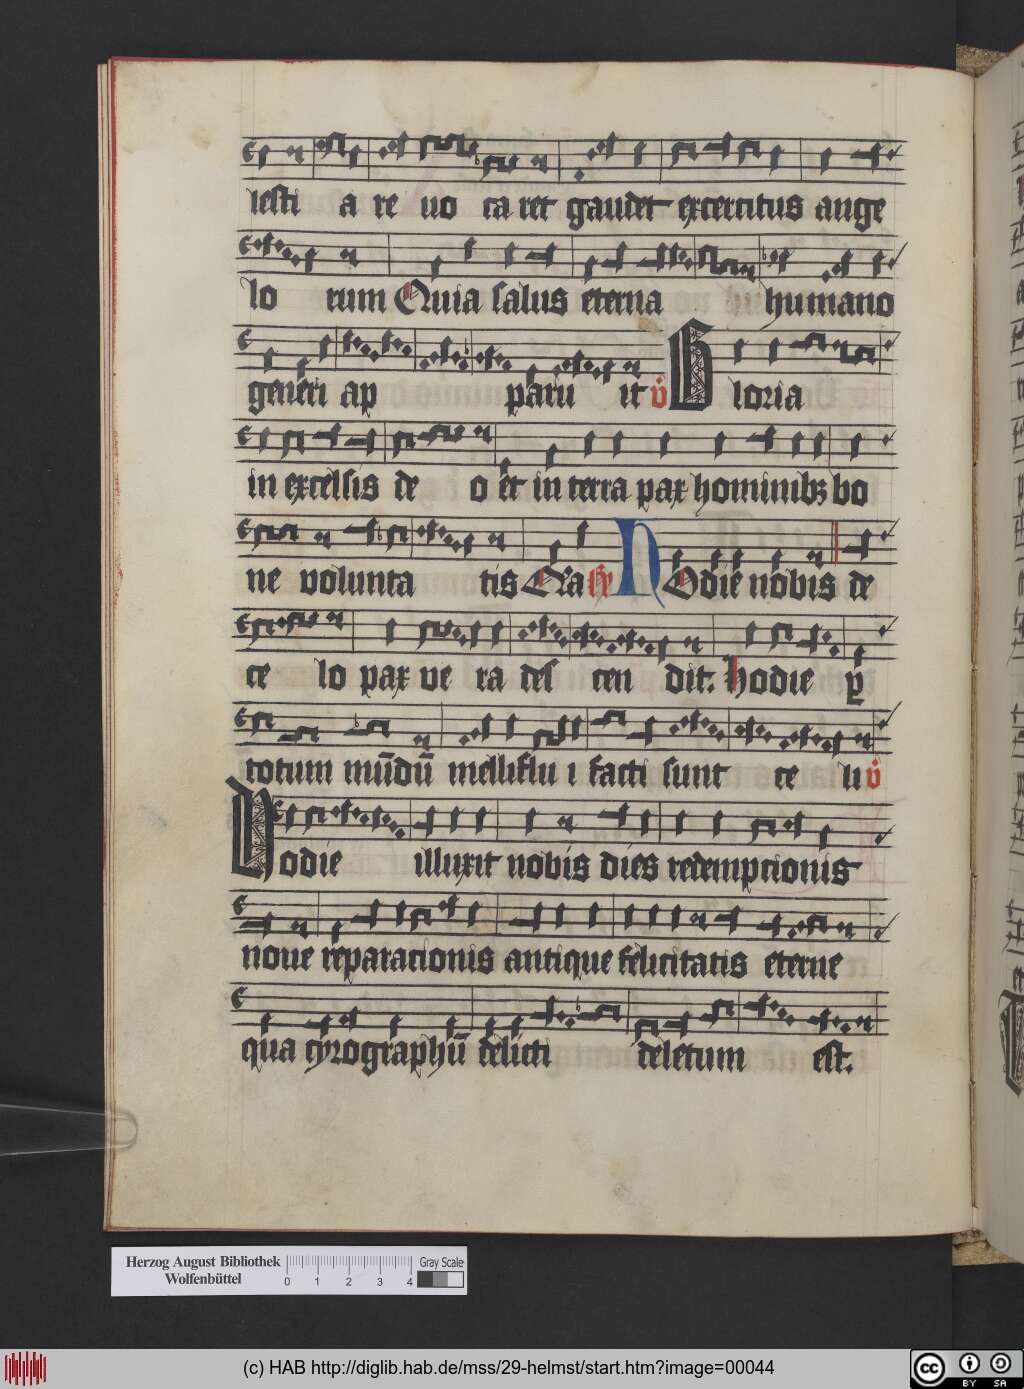 lesti a re uo ca ret gaudet excercitus ange
lo rum Quia salus eterna humano
generi ap paru it v̊ Gloria
in excelsis de o et in terra pax hominibꝫ bo
ne volunta tis Q'a Ry Hodie nobis de
ce lo pax ve ra des cen dit. hodie ꝑ
totum mūdū melliflu i facti sunt ce li v̊
Hodie illuxit nobis dies redempcionis
noue reparacionis antique felicitatis eterne
qua cyrographū delicti deletum est.
Herzog August Bibliothek
Wolfenbüttel
0 1 2 3 4
Gray Scale
(c) HAB http://diglib.hab.de/mss/29-helmst/start.htm?image=00044
cc BY SA